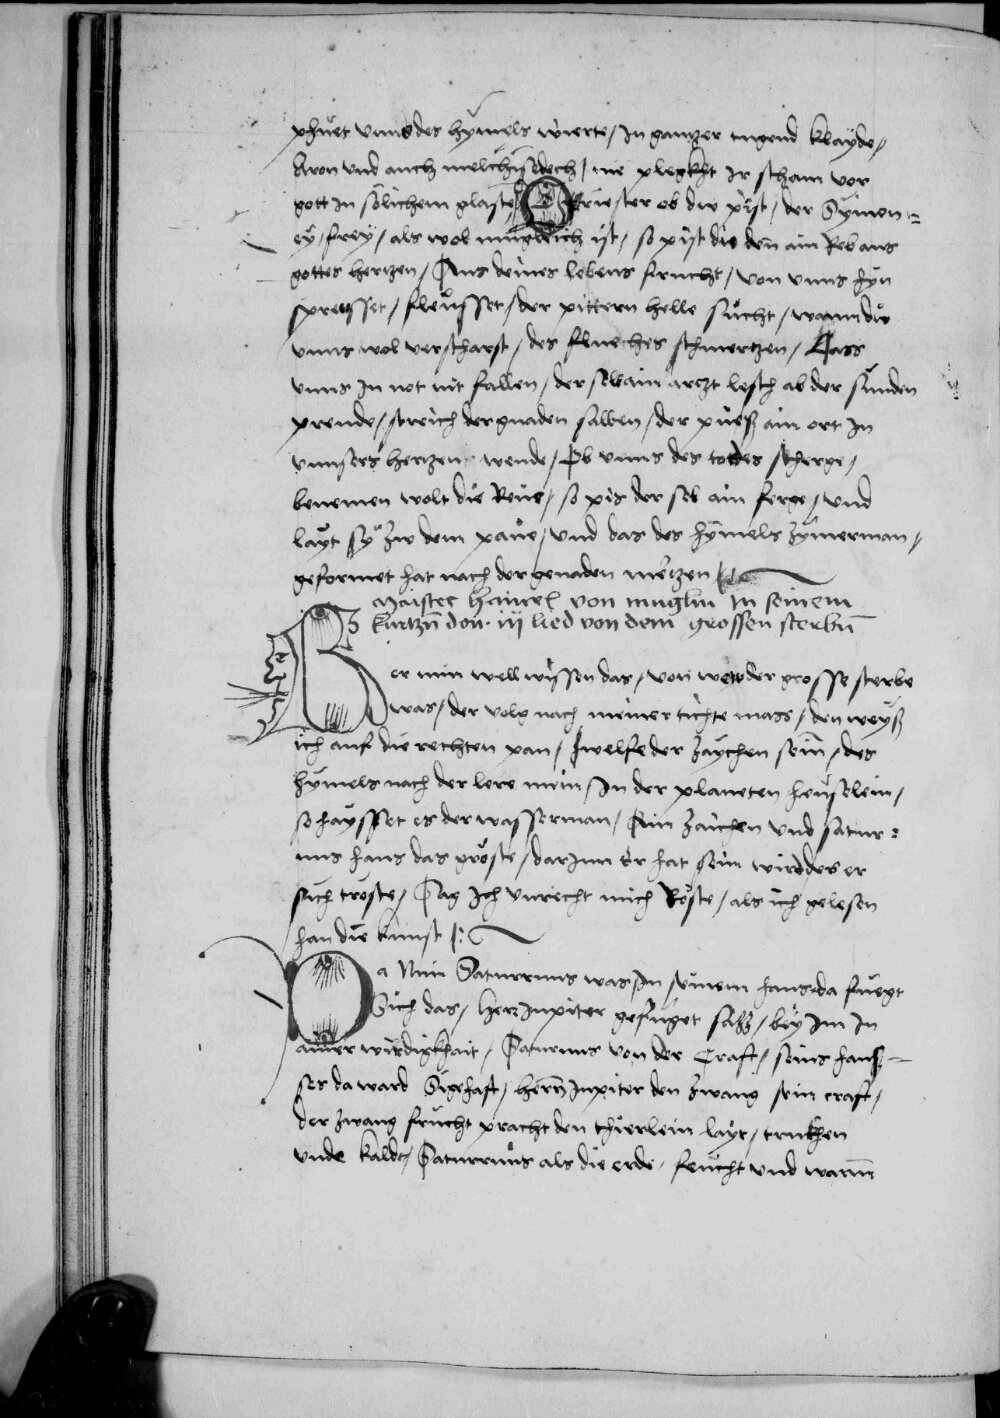 phüet vnns des hymels wierte / In gantzer tugend klayde /
Aron vnd auch melchisedech / nie plegkht ir scham vor
gott in sölichem glaste / O Priester ob diw pist / der Symon =
ey / frey / als wol muglich ist / so pist die den ain Reb aus
gottes hertzen / Aus deines lebens frucht / von vnns hyn
spreusset / fleusset / der pittern helle sücht / wann diw
vnns wol verscharst / des fluches schmertzen / Lass
vnns in not nit fallen / der selb ain arczt lesch ab der sünden
prende / streich der gnaden salben / der pueß ain ort in
vnnsers hertzens wende / Ob vnns des todes scherge /
benemen wolt die Reue / so pis der seb ain ferge / vnd
layt sy zw dem paue / vnd das des hymels zymerman /
geformet hat nach der genaden mertzen
Maister hainrich von muglin in seinem
kurtzn don · iij lied von dem grossen sterbn
Wer nun well wissen das / von wew der grosse sterbe
was / der volg nach meiner tichte mass / den weyß
ich auf die rechten pan / Zwelfe der zaychen sein / des
hymels nach der lere mein / In der planeten heuselein /
so haysset es der wasserman / Ain zaichen vnd satur =
nus haus das gröste / darinn Er hat sein wird des er
sich tröste / Sag Ich vnrecht mich Röste / als ich gelesen
han die kunst
Da Nun Saturnus was / In seinem haus / da fuegt
Sich das / herr Jupiter gefüget saß / bey Im In
ainer wirdigkhait / Saturnus von der Craft / seins hauß =
ses da ward Sighaft / herrn Jupiter den zwang sein craft /
der zwang frucht pracht den thierlein layt / truckhen
vnde kaldt / Saturnus als die erde / feucht vnd warm